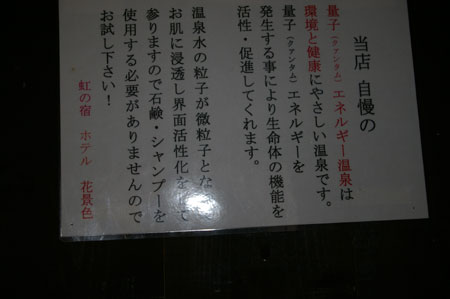 当店 自慢の
量子（クァンタム）エネルギー温泉は
環境と健康にやさしい温泉です。
量子（クァンタム）エネルギーを
発生する事により生命体の機能を
活性・促進してくれます。
温泉水の粒子が微粒子とな
お肌に浸透し界面活性化を て
参りますので石鹸・シャンプーを
使用する必要がありませんので
お試し下さい！
虹の宿 ホテル 花景色